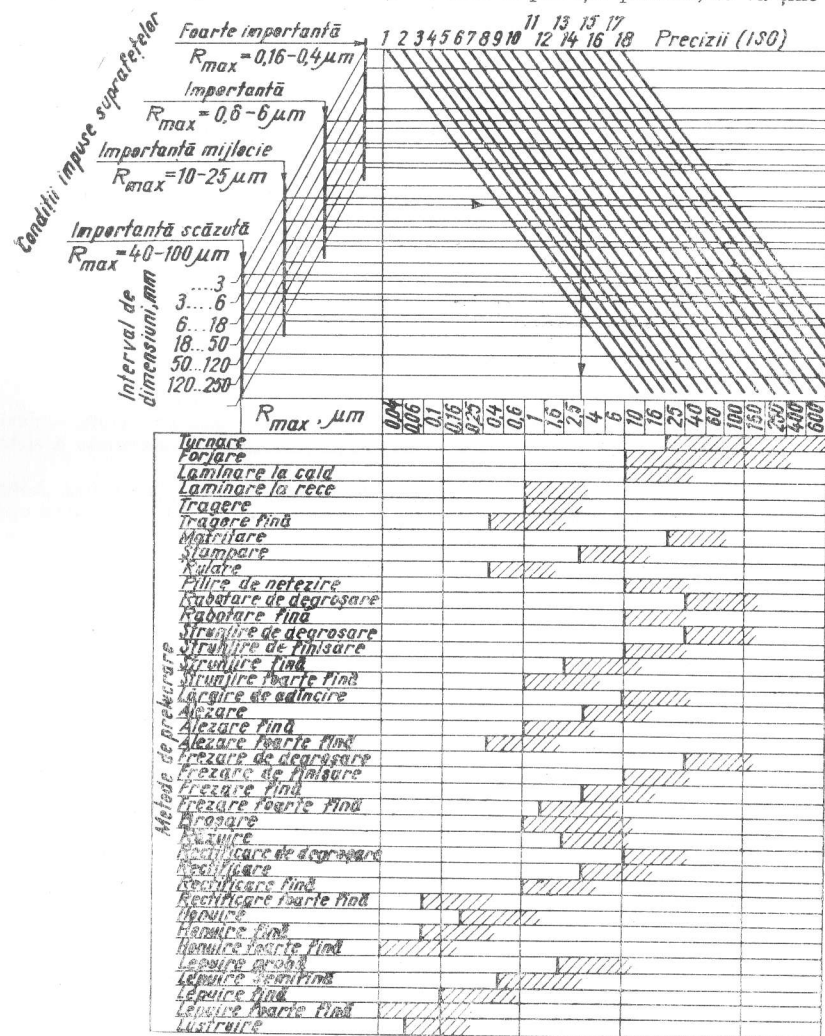 Condiții impuse suprafețelor
Foarte importantă
R max = 0,16-0,4 µm
Importantă
R max = 0,6-6 µm
Importantă mijlocie
R max = 10-25 µm
Importantă scăzută
R max = 40-100 µm
1 2 3 4 5 6 7 8 9 10 11 12 13 14 15 16 17 18 Precizii (ISO)
Interval de dimensiuni, mm
....3
3...6
6...18
18...50
50...120
120...250
R max, µm
0,04 0,06 0,1 0,16 0,25 0,4 0,6 1 1,6 2,5 4 6 10 16 25 40 60 100 150 250 400 600
Metode de prelucrare
Turnare
Forjare
Laminare la cald
Laminare la rece
Tragere
Tragere fină
Matrițare
Ștampare
Rulare
Pilire de netezire
Rabotare de degroșare
Rabotare fină
Strunjire de degroșare
Strunjire de finisare
Strunjire fină
Strunjire foarte fină
Lărgire de adîncire
Alezare
Alezare fină
Alezare foarte fină
Frezare de degroșare
Frezare de finisare
Frezare fină
Frezare foarte fină
Broșare
Răzuire
Rectificare de degroșare
Rectificare
Rectificare fină
Rectificare foarte fină
Honuire
Honuire fină
Honuire foarte fină
Lepuire grobă
Lepuire semifină
Lepuire fină
Lepuire foarte fină
Lustruire